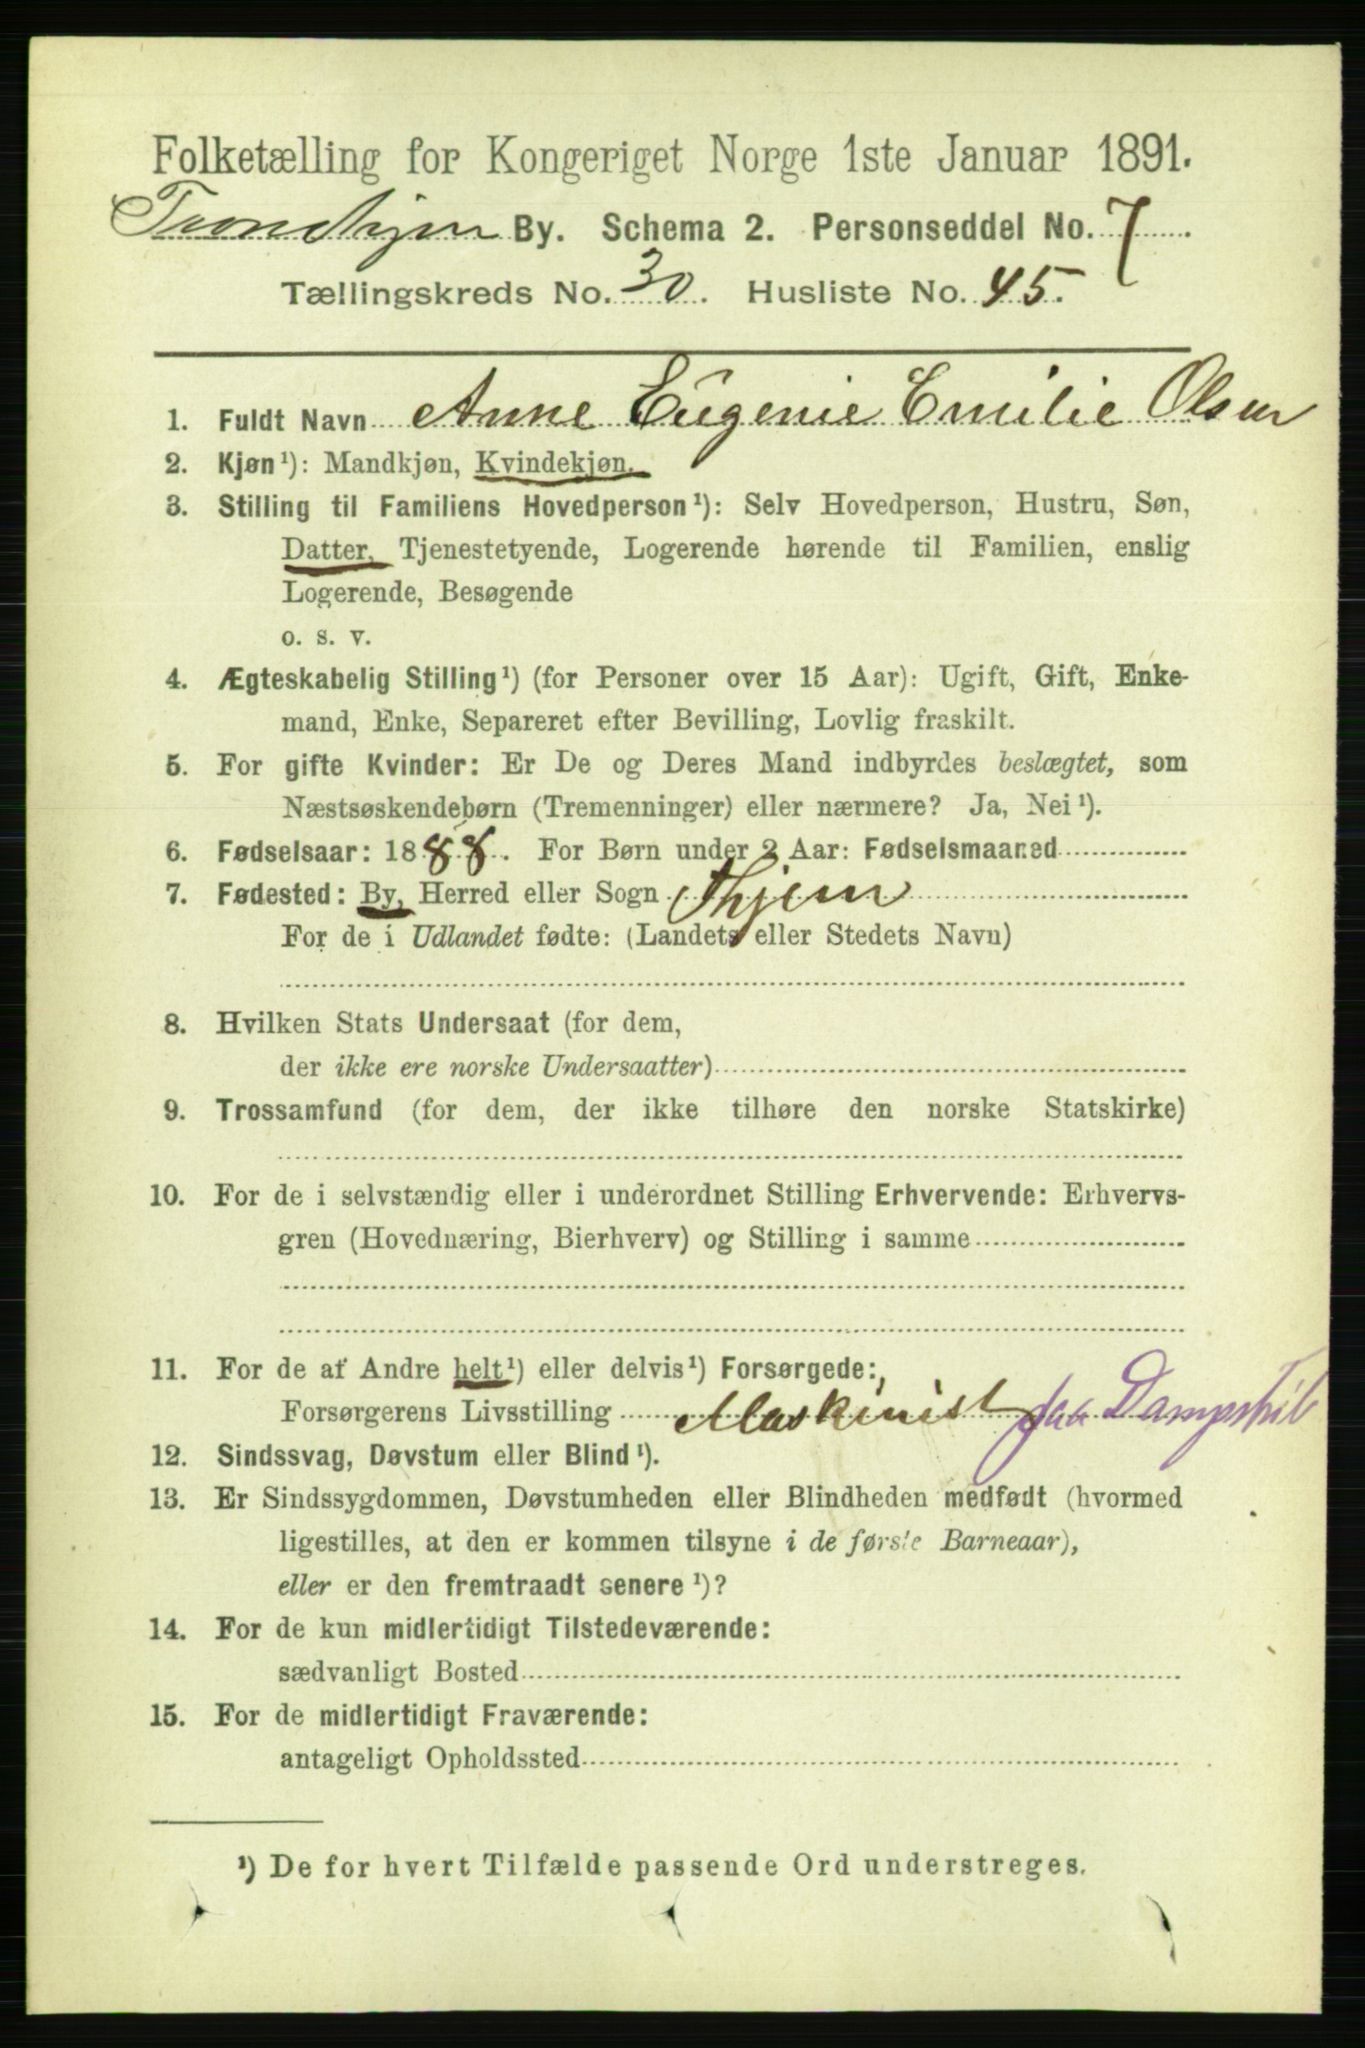 Folketælling for Kongeriget Norge 1ste Januar 1891.
Trondhjem By. Schema 2. Personseddel No. 7
Tællingskreds No. 30. Husliste No. 45.
1. Fuldt Navn Anne Eugenie Emilie Olsen
2. Kjøn¹): Mandkjøn, Kvindekjøn.
3. Stilling til Familiens Hovedperson¹): Selv Hovedperson, Hustru, Søn,
Datter, Tjenestetyende, Logerende hørende til Familien, enslig
Logerende, Besøgende
o. s. v.
4. Ægteskabelig Stilling¹) (for Personer over 15 Aar): Ugift, Gift, Enke-
mand, Enke, Separeret efter Bevilling, Lovlig fraskilt.
5. For gifte Kvinder: Er De og Deres Mand indbyrdes beslægtet, som
Næstsøskendebørn (Tremenninger) eller nærmere? Ja, Nei¹).
6. Fødselsaar: 1888. For Børn under 2 Aar: Fødselsmaaned
7. Fødested: By, Herred eller Sogn Thjem
For de i Udlandet fødte: (Landets eller Stedets Navn)
8. Hvilken Stats Undersaat (for dem,
der ikke ere norske Undersaatter)
9. Trossamfund (for dem, der ikke tilhøre den norske Statskirke)
10. For de i selvstændig eller i underordnet Stilling Erhvervende: Erhvervs-
gren (Hovednæring, Bierhverv) og Stilling i samme
11. For de af Andre helt¹) eller delvis¹) Forsørgede:
Forsørgerens Livsstilling Maskinist paa Dampskib
12. Sindssvag, Døvstum eller Blind¹).
13. Er Sindssygdommen, Døvstumheden eller Blindheden medfødt (hvormed
ligestilles, at den er kommen tilsyne i de første Barneaar),
eller er den fremtraadt senere¹)?
14. For de kun midlertidigt Tilstedeværende:
sædvanligt Bosted
15. For de midlertidigt Fraværende:
antageligt Opholdssted
¹) De for hvert Tilfælde passende Ord understreges.